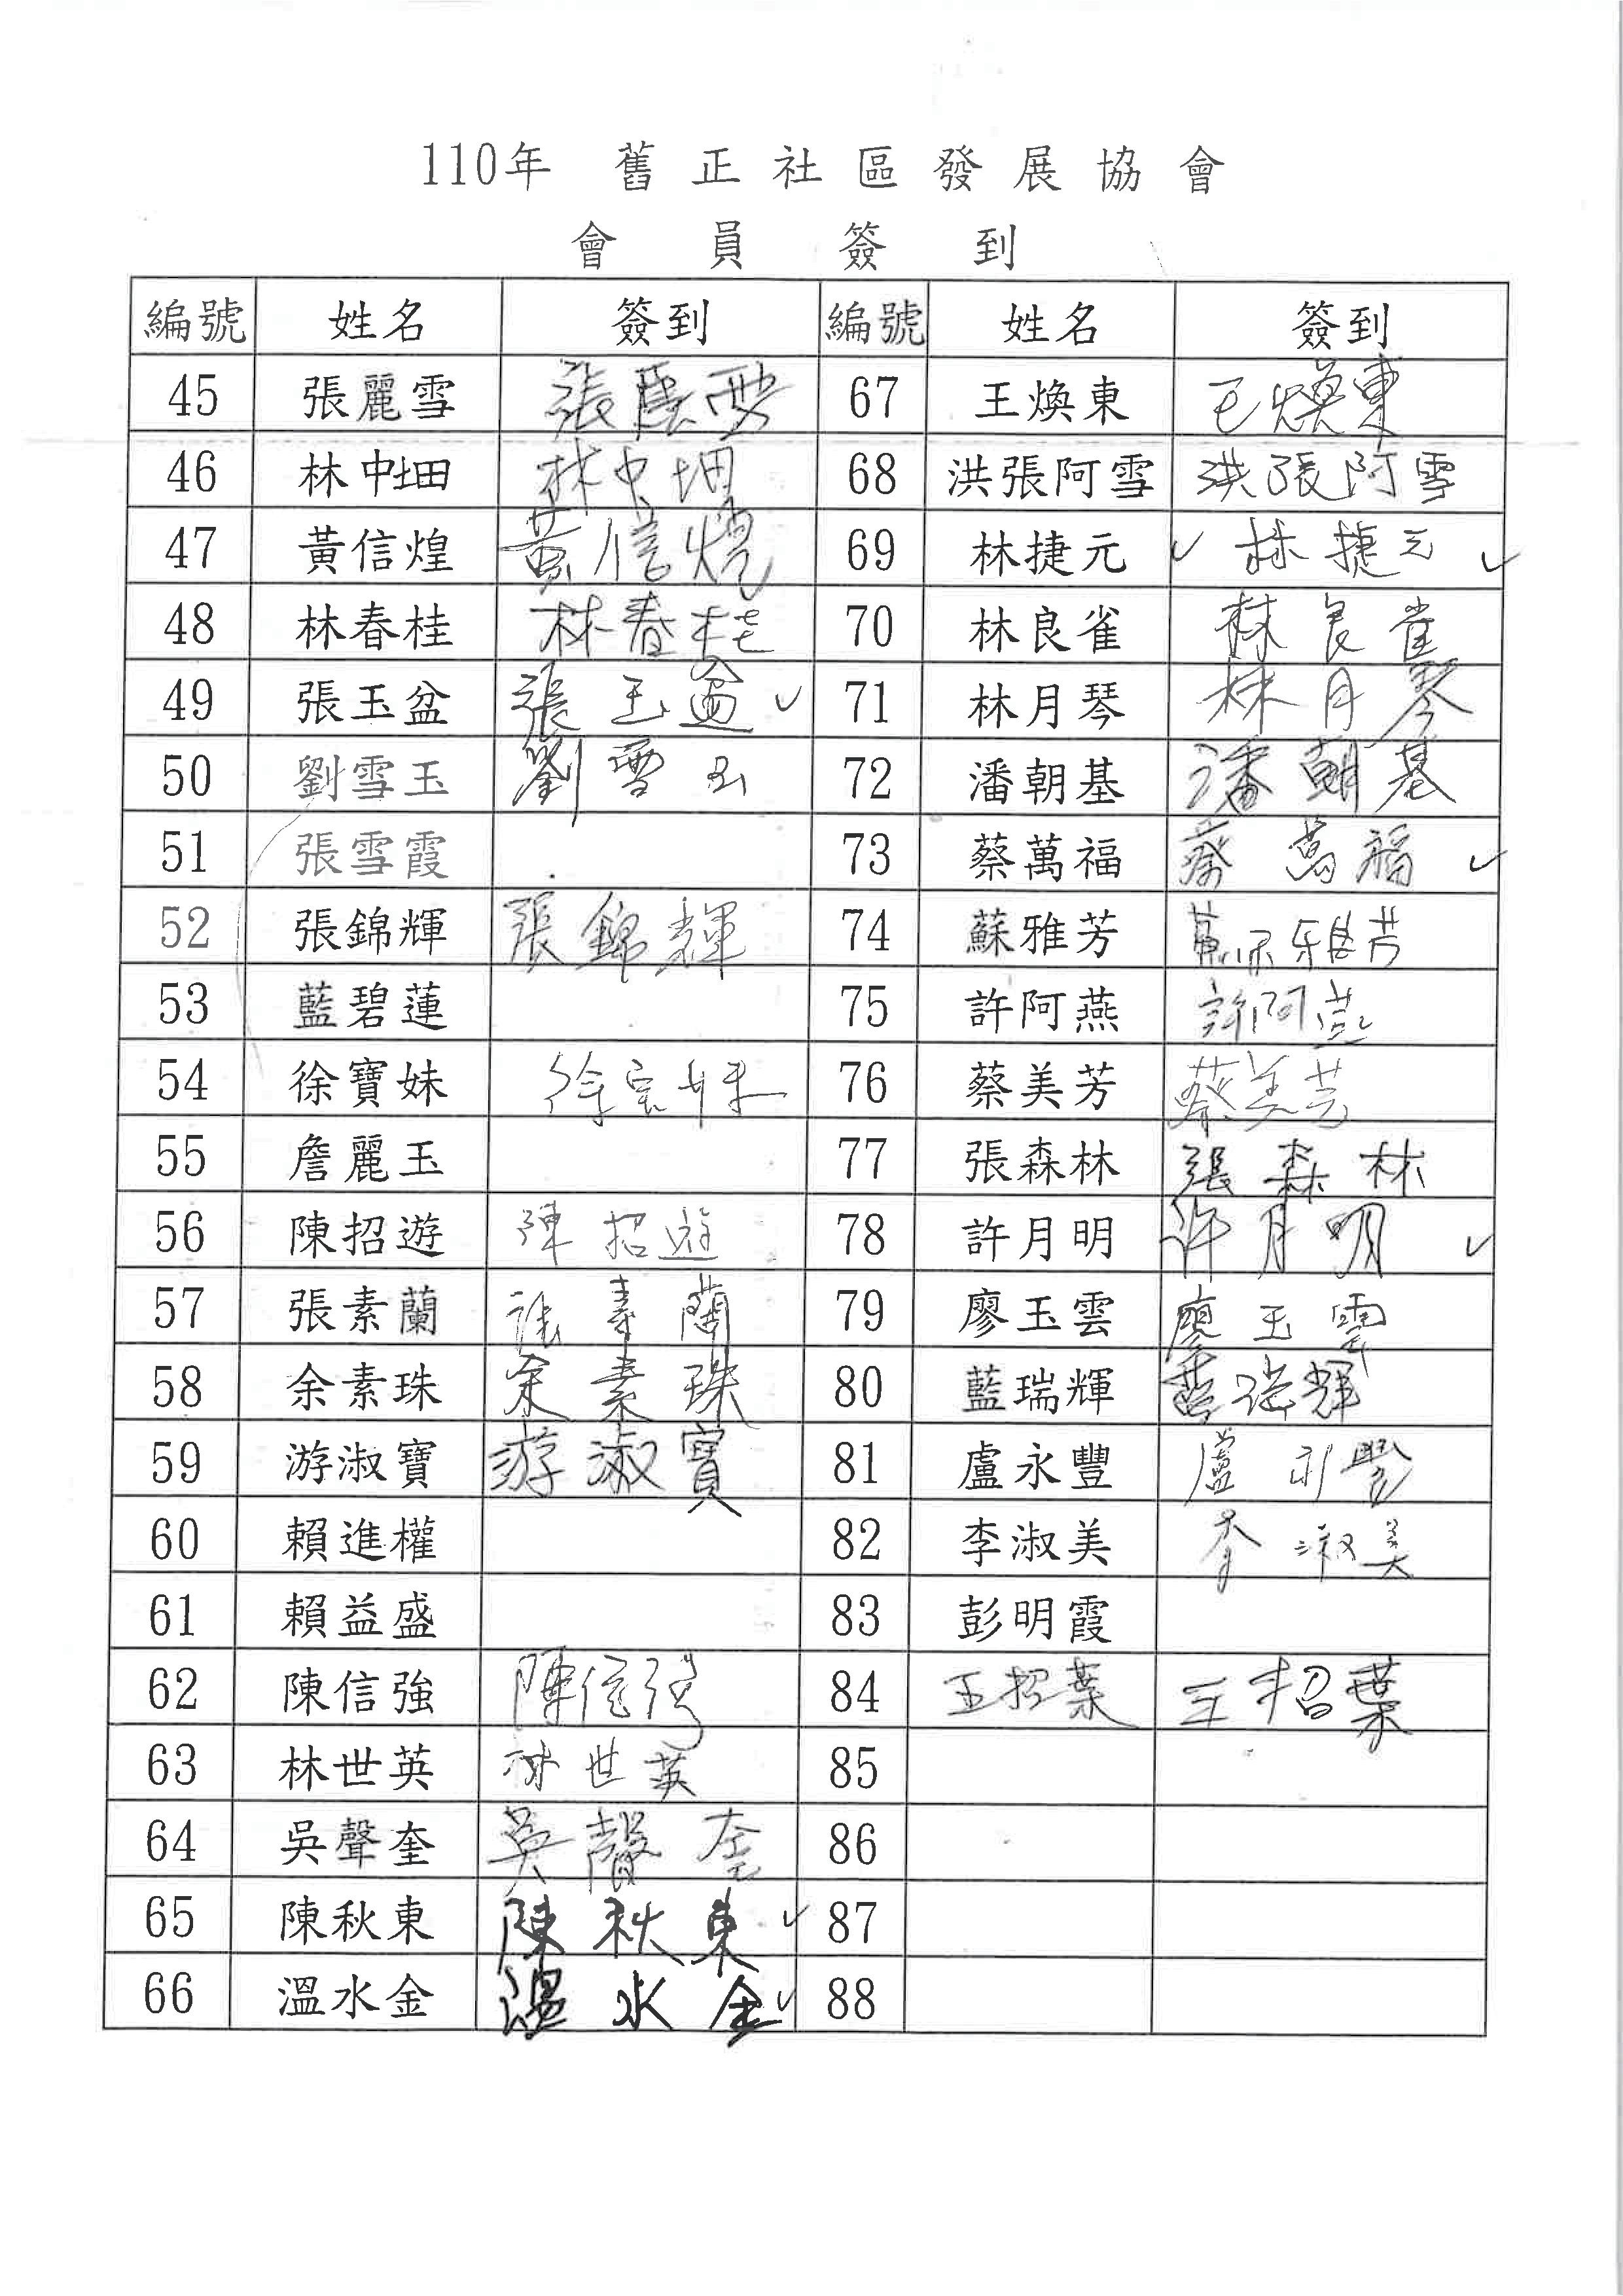 110年 舊正社區發展協會
會員簽到
編號 姓名 簽到 編號 姓名 簽到
45 張麗雪 張麗雪 67 王煥東 王煥東
46 林中𤱶 林中 68 洪張阿雪 洪張阿雪
47 黃信煌 黃信煌 69 林捷元 ✓ 林捷元 ✓
48 林春桂 林春桂 70 林良雀 林良雀
49 張玉盆 張玉盆 ✓ 71 林月琴 林月琴
50 劉雪玉 劉雪玉 72 潘朝基 潘朝基
51 張雪霞 73 蔡萬福 蔡萬福 ✓
52 張錦輝 張錦輝 74 蘇雅芳 蘇雅芳
53 藍碧蓮 75 許阿燕 許阿燕
54 徐寶妹 徐宝妹 76 蔡美芳 蔡美芳
55 詹麗玉 77 張森林 張森林
56 陳招遊 陳招遊 78 許月明 许月明 ✓
57 張素蘭 張素蘭 79 廖玉雲 廖玉雲
58 余素珠 余素珠 80 藍瑞輝 藍瑞輝
59 游淑寶 游淑寶 81 盧永豐 盧永豐
60 賴進權 82 李淑美 李淑美
61 賴益盛 83 彭明霞
62 陳信強 陳信強 84 王招葉 王招葉
63 林世英 林世英 85
64 吳聲奎 吳聲奎 86
65 陳秋東 陳秋東 ✓ 87
66 溫水金 溫水金 ✓ 88